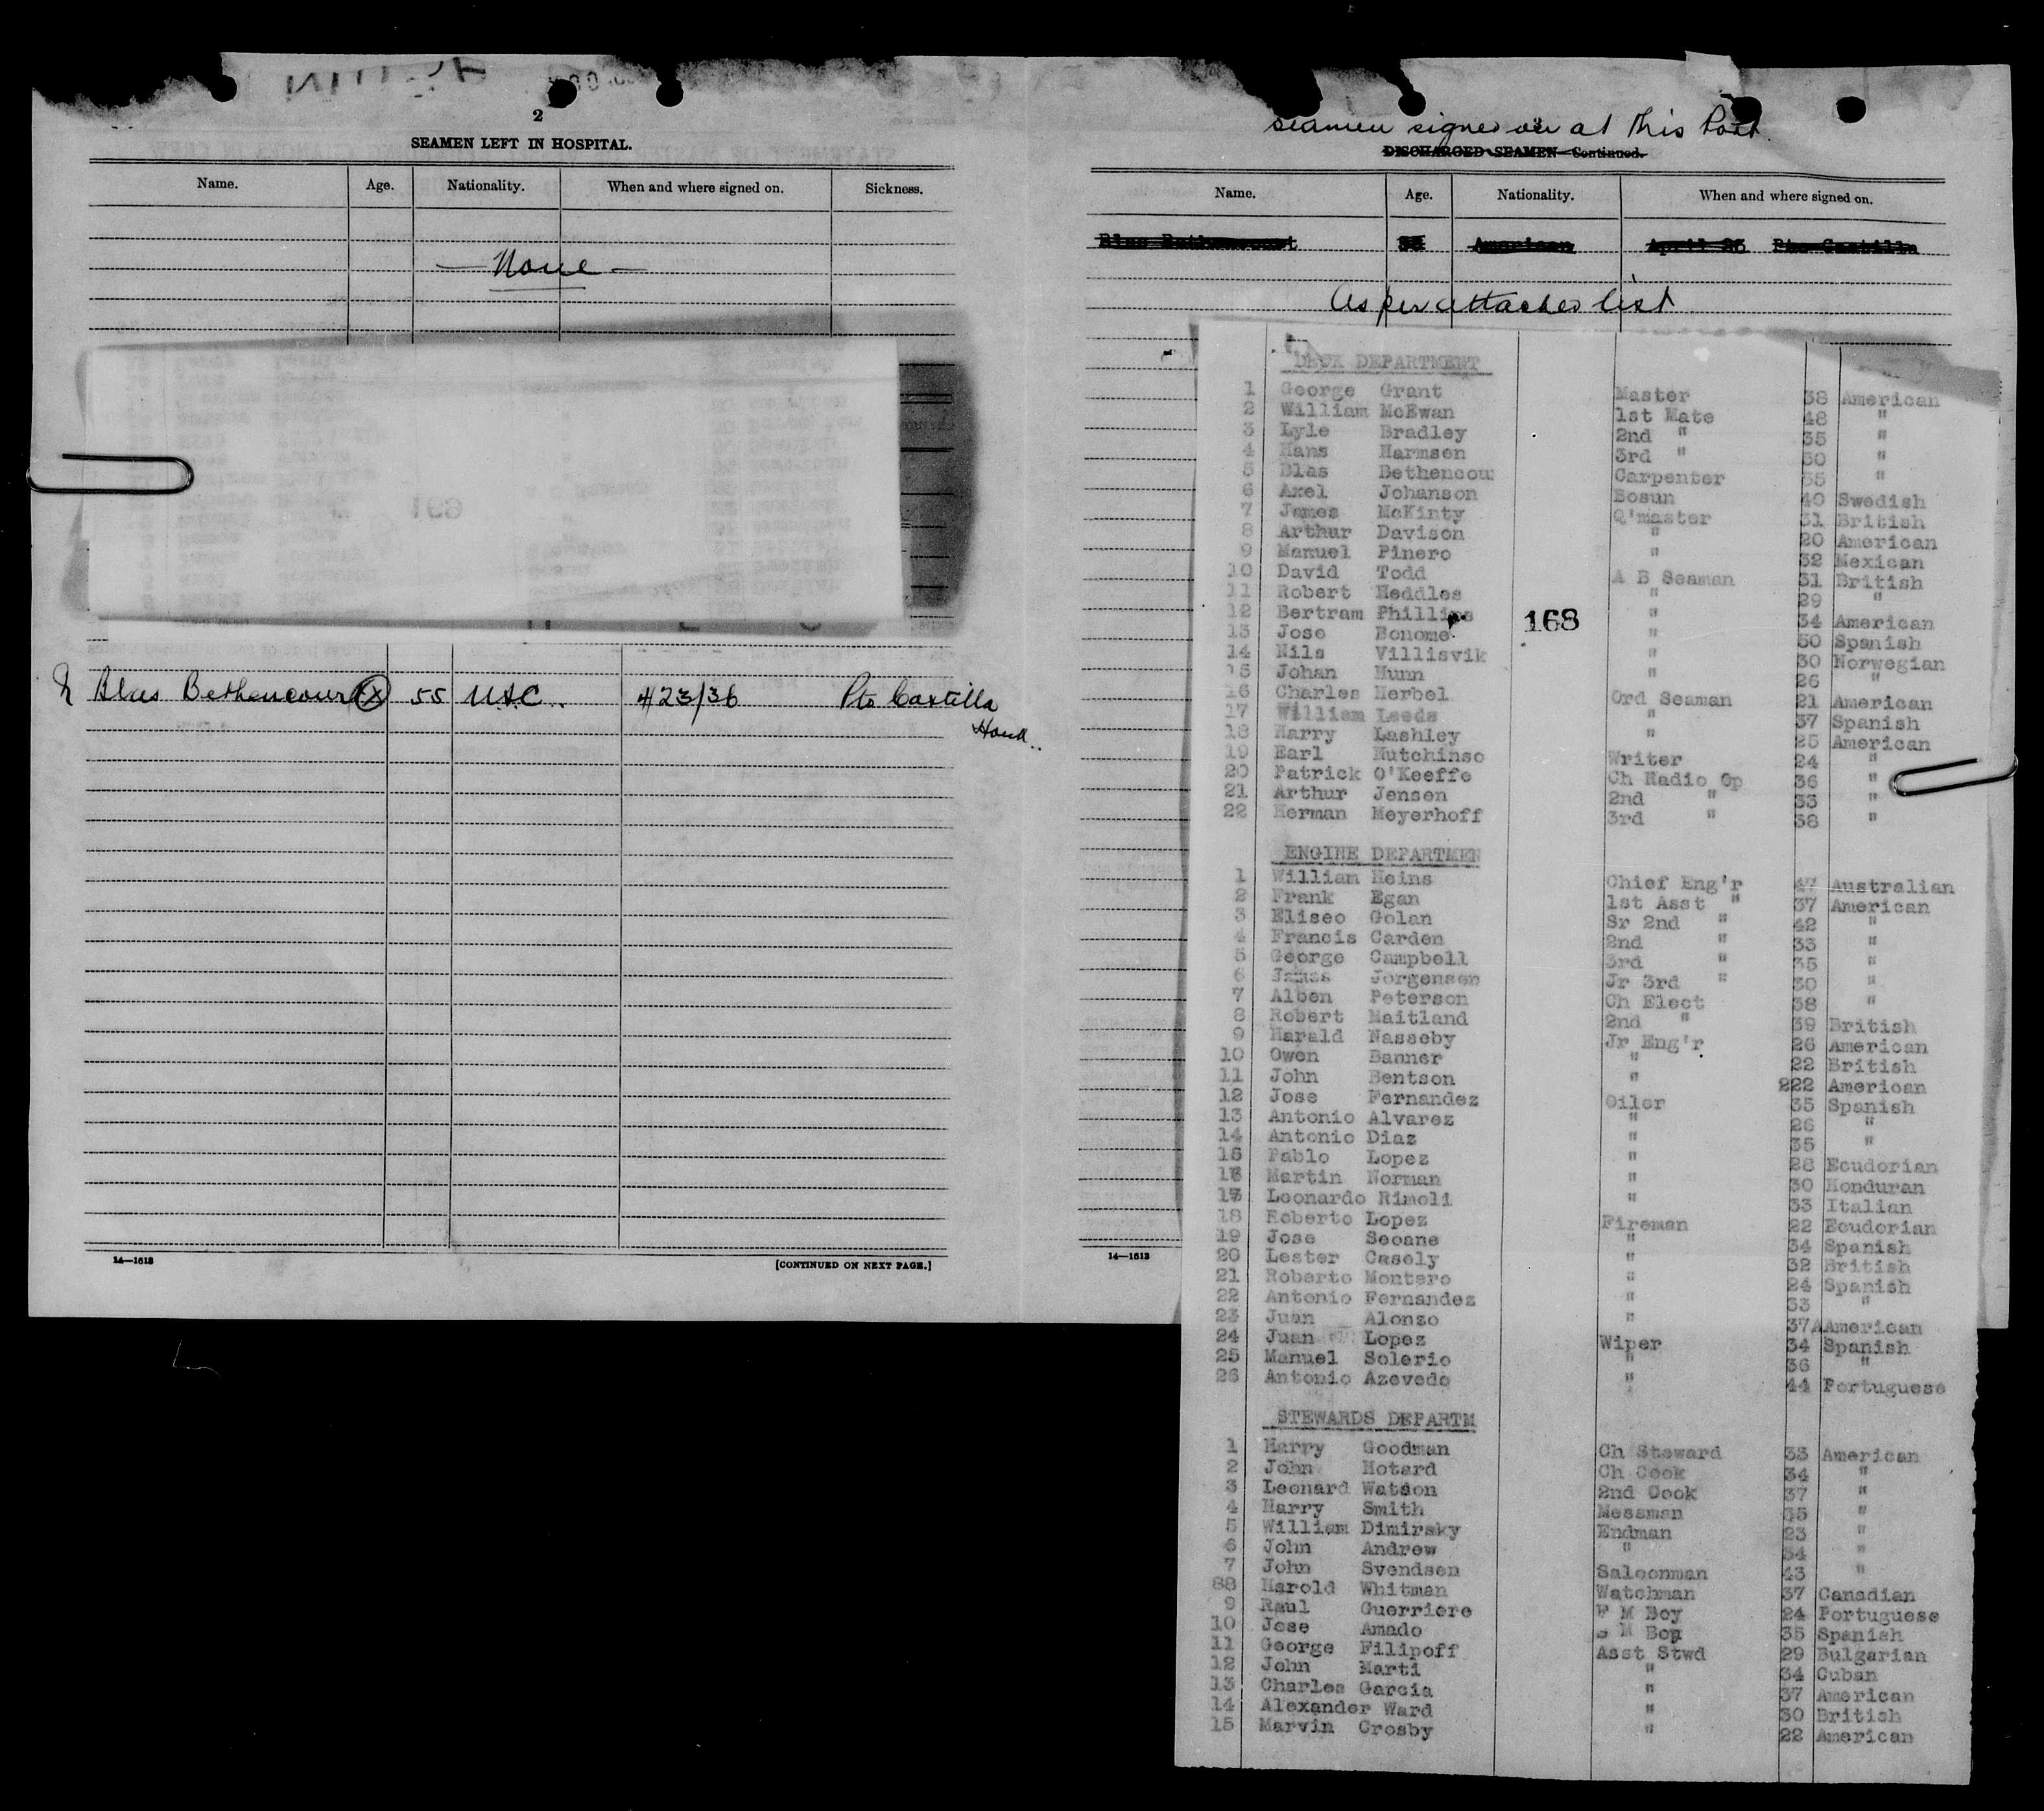 2
SEAMEN LEFT IN HOSPITAL.
Name. Age. Nationality. When and where signed on. Sickness.
— None —
169
Blas Bethencourt X 55 U.S.C. 4/23/36 Pto Castilla
Hond..
14—1613 [CONTINUED ON NEXT PAGE.]
Seamen signed on at this Port.
DISCHARGED SEAMEN—Continued.
Name. Age. Nationality. When and where signed on.
Blas Bethencourt American April 23 Pto Castilla
As per attached list
DECK DEPARTMENT
1 George Grant Master 38 American
2 William McEwan 1st Mate 48 "
3 Lyle Bradley 2nd " 35 "
4 Hans Harmsen 3rd " 30 "
5 Blas Bethencou Carpenter 55 "
6 Axel Johanson Bosun 40 Swedish
7 James McKinty Q'master 31 British
8 Arthur Davison " 20 American
9 Manuel Pinero " 32 Mexican
10 David Todd A B Seaman 31 British
11 Robert Heddles " 29 "
12 Bertram Phillips " 34 American
168
13 Jose Bonome " 50 Spanish
14 Nils Villisvik " 30 Norwegian
15 Johan Munn " 26 "
16 Charles Herbel Ord Seaman 21 American
17 William Leeds " 37 Spanish
18 Harry Lashley " 25 American
19 Earl Hutchinso Writer 24 "
20 Patrick O'Keeffe Ch Radio Op 36 "
21 Arthur Jensen 2nd " 33 "
22 Herman Meyerhoff 3rd " 38 "
ENGINE DEPARTMEN
1 William Heins Chief Eng'r 47 Australian
2 Frank Egan 1st Asst " 37 American
3 Eliseo Golan Sr 2nd " 42 "
4 Francis Carden 2nd " 33 "
5 George Campbell 3rd " 35 "
6 James Jorgensen Jr 3rd " 30 "
7 Alben Peterson Ch Elect 38 "
8 Robert Maitland 2nd " 39 British
9 Harald Nasseby Jr Eng'r 26 American
10 Owen Banner " 22 British
11 John Bentson " 222 American
12 Jose Fernandez Oiler 35 Spanish
13 Antonio Alvarez " 26 "
14 Antonio Diaz " 35 "
15 Pablo Lopez " 28 Ecudorian
16 Martin Norman " 30 Honduran
17 Leonardo Rimoli " 33 Italian
18 Roberto Lopez Fireman 22 Ecudorian
19 Jose Seoane " 34 Spanish
20 Lester Casely " 32 British
21 Roberto Montero " 24 Spanish
22 Antonio Fernandez " 33 "
23 Juan Alonzo " 37 AAmerican
24 Juan Lopez Wiper 34 Spanish
25 Manuel Solerio " 36 "
26 Antonio Azevedo " 44 Portuguese
STEWARDS DEPARTM
1 Harry Goodman Ch Steward 33 American
2 John Hotard Ch Cook 34 "
3 Leonard Watson 2nd Cook 37 "
4 Harry Smith Messman 35 "
5 William Dimirsky Endman 23 "
6 John Andrew " 34 "
7 John Svendsen Saloonman 43 "
88 Harold Whitman Watchman 37 Canadian
9 Raul Guerriere F M Boy 24 Portuguese
10 Jose Amado S M Boy 35 Spanish
11 George Filipoff Asst Stwd 29 Bulgarian
12 John Marti " 34 Cuban
13 Charles Garcia " 37 American
14 Alexander Ward " 30 British
15 Marvin Crosby " 22 American
14—1613